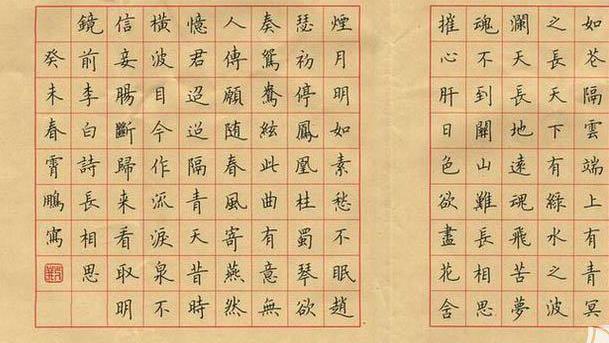 如花隔雲端上有青冥
之長天下有綠水之波
瀾天長地遠魂飛苦夢
魂不到關山難長相思
摧心肝日色欲盡花含
煙月明如素愁不眠趙
瑟初停鳳凰柱蜀琴欲
奏鴛鴦絃此曲有意無
人傳願随春風寄燕然
憶君迢迢隔青天昔時
橫波目今作流淚泉不
信妾腸斷歸来看取明
鏡前李白詩長相思
癸未春霄鵬寫